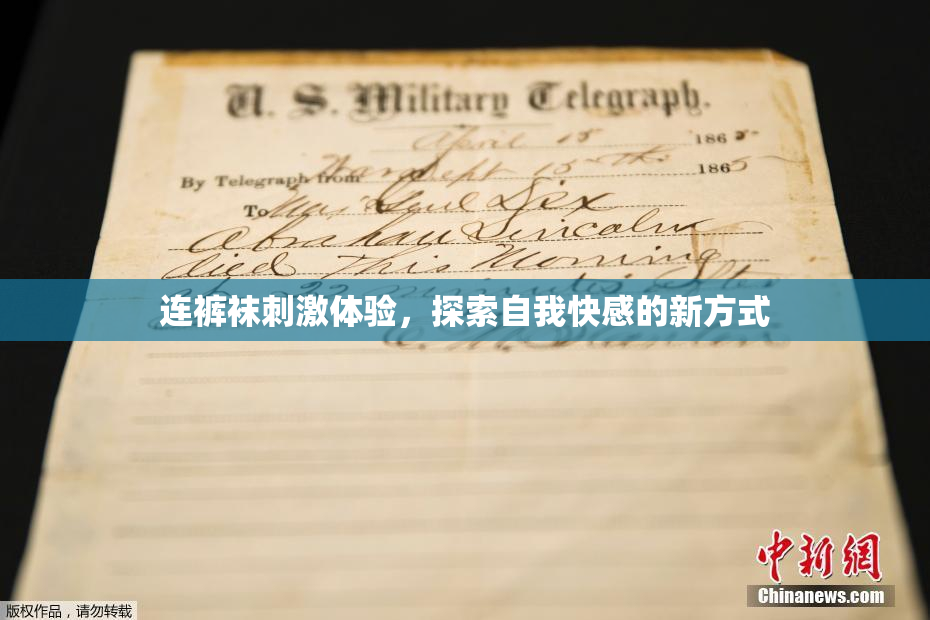 U. S. Military Telegraph.
April 15 1865
By Telegraph from War Dept 15th 1865
To Maj Genl Dix
Abraham Lincoln
died This Morning
22 minutes after
连裤袜刺激体验，探索自我快感的新方式
E. M. Stanton
中新网
Chinanews.com
版权作品，请勿转载